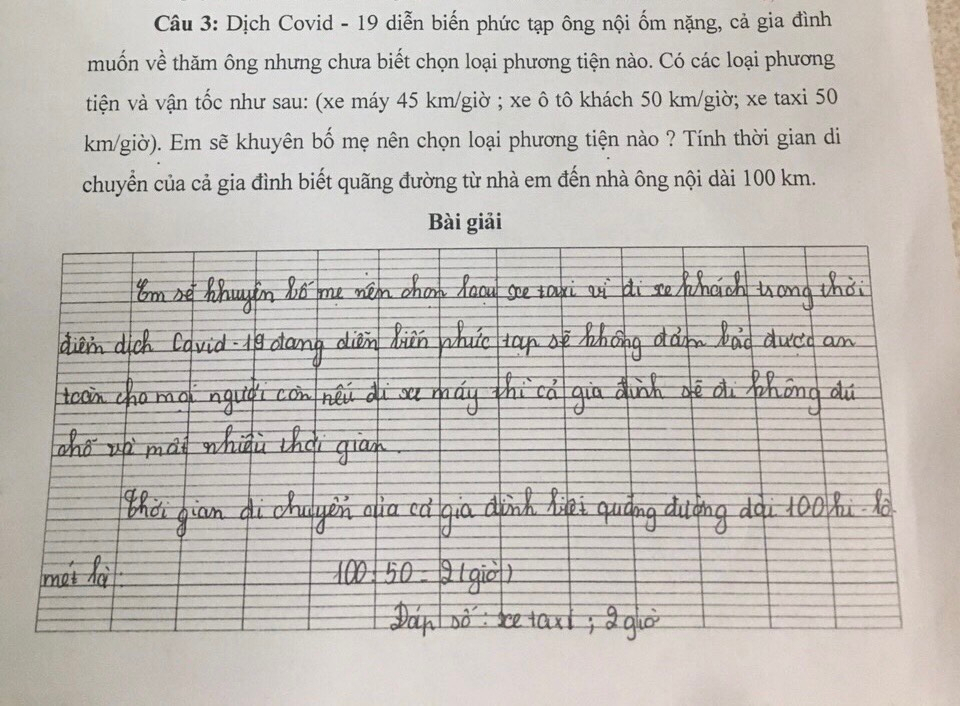 Câu 3: Dịch Covid - 19 diễn biến phức tạp ông nội ốm nặng, cả gia đình
muốn về thăm ông nhưng chưa biết chọn loại phương tiện nào. Có các loại phương
tiện và vận tốc như sau: (xe máy 45 km/giờ ; xe ô tô khách 50 km/giờ; xe taxi 50
km/giờ). Em sẽ khuyên bố mẹ nên chọn loại phương tiện nào ? Tính thời gian di
chuyển của cả gia đình biết quãng đường từ nhà em đến nhà ông nội dài 100 km.
Bài giải
Em sẽ khuyên bố mẹ nên chọn loại xe taxi vì đi xe khách trong thời
điểm dịch Covid-19 đang diễn biến phức tạp sẽ không đảm bảo được an
toàn cho mọi người còn nếu đi xe máy thì cả gia đình sẽ đi không đủ
chỗ và mất nhiều thời gian.
Thời gian di chuyển của cả gia đình biết quãng đường dài 100 ki-lô-
mét là:
100 : 50 = 2 (giờ)
Đáp số : xe taxi ; 2 giờ